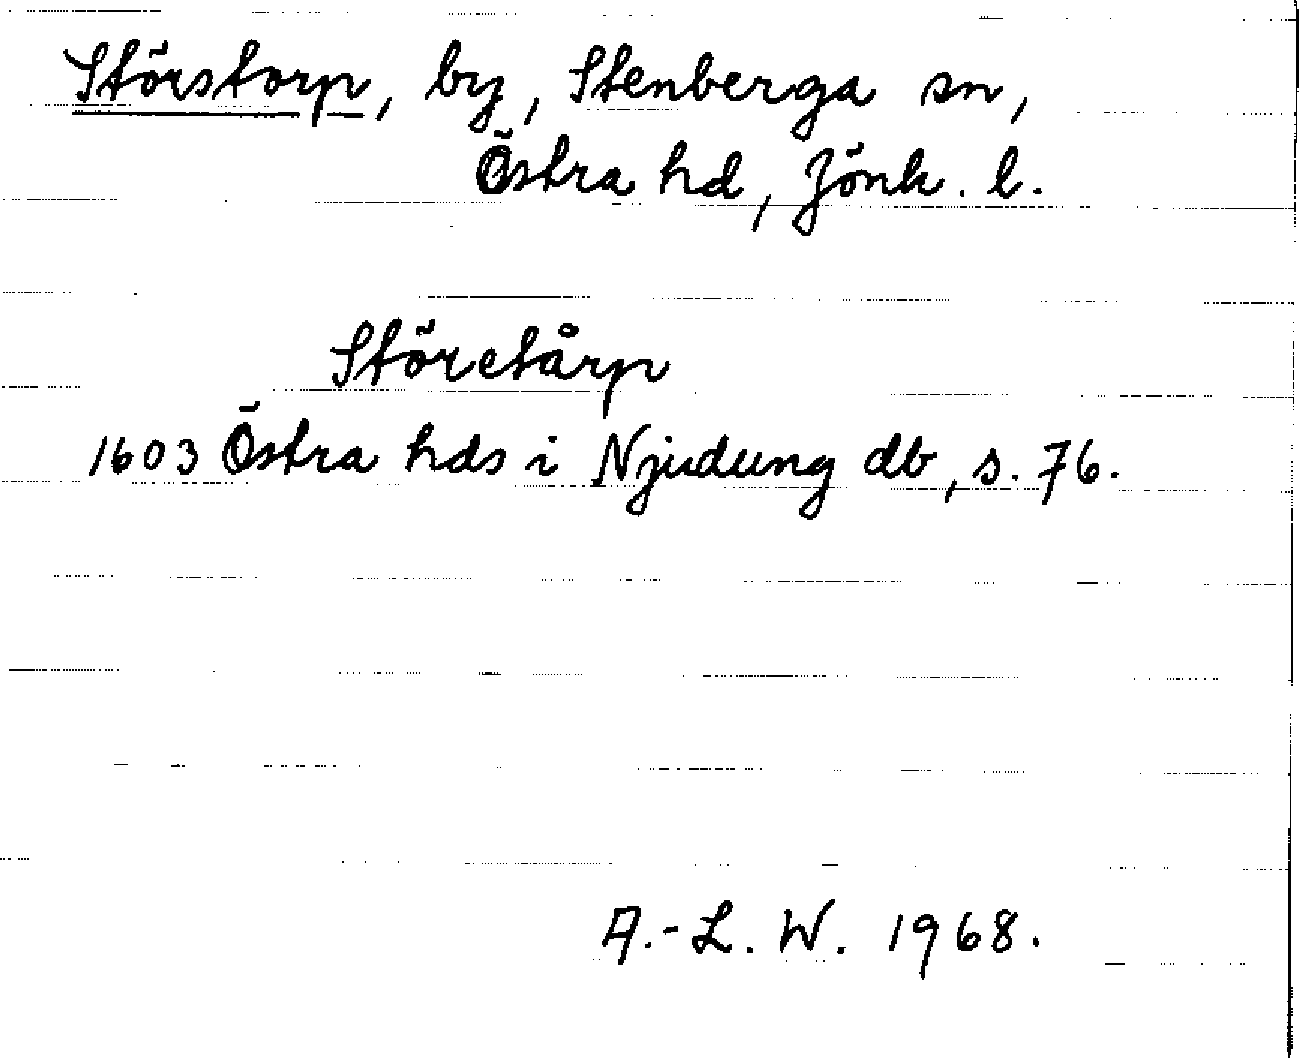 Störstorp, by, Stenberga sn,
Östra hd, Jönk. l.
Störetårp
1603 Östra hds i Njudung db, s. 76.
A.-L. W. 1968.